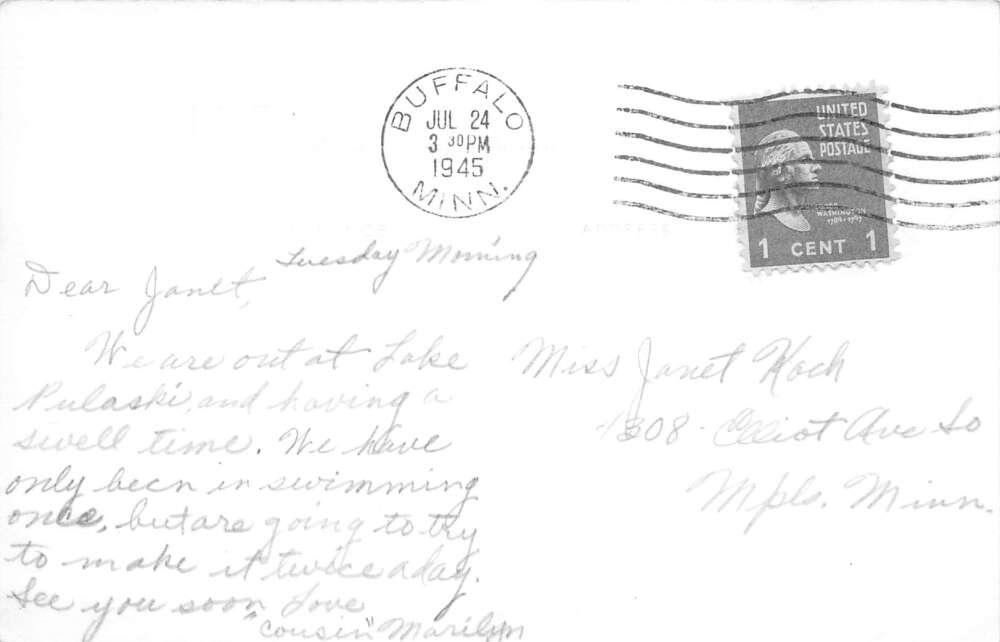 BUFFALO
JUL 24
3 30PM
1945
MINN.
UNITED
STATES
POSTAGE
WASHINGTON
1789-1797
1 CENT 1
Tuesday Morning
Dear Janet,
We are out at Lake
Pulaski, and having a
swell time. We have
only been in swimming
once, but are going to try
to make it twice a day.
See you soon Love
"Cousin" Marilyn
Miss Janet Koch
1308 - Elliot Ave So
Mpls. Minn.